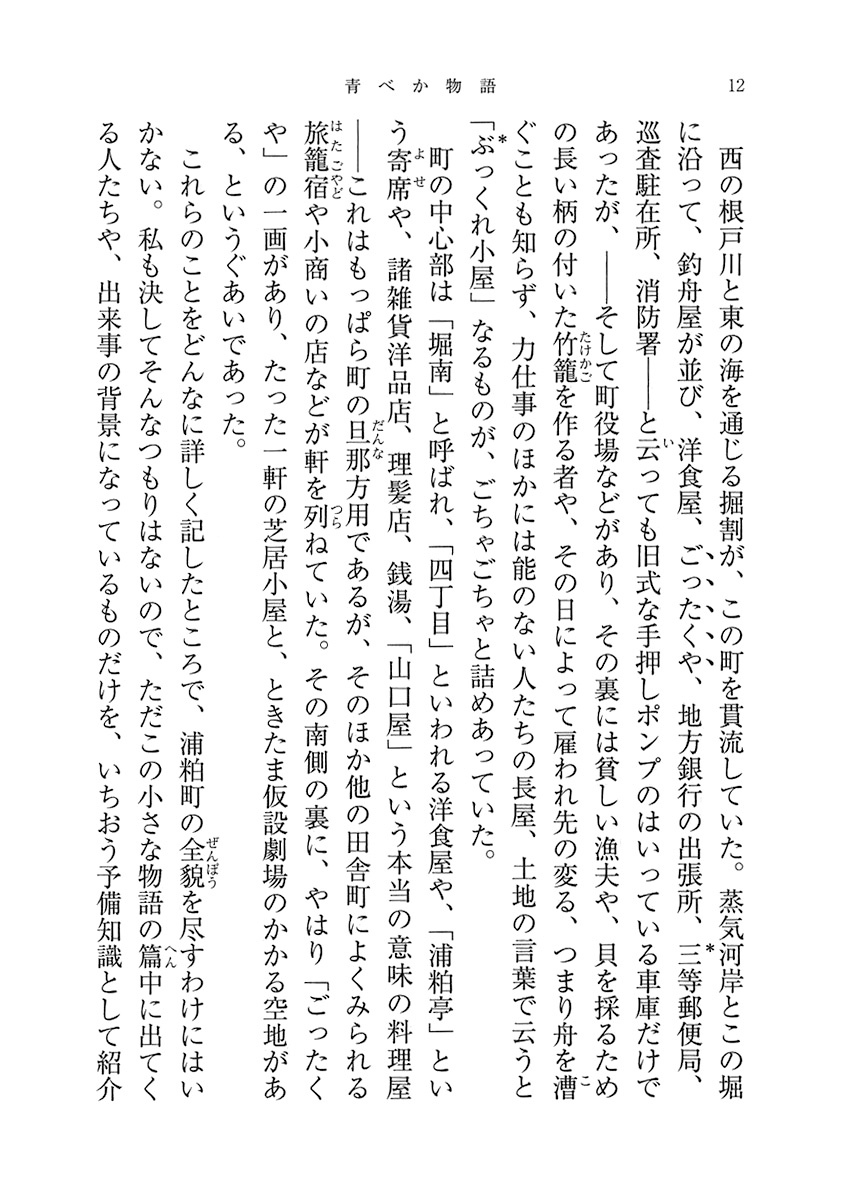 青べか物語
12
西の根戸川と東の海を通じる掘割が、この町を貫流していた。蒸気河岸とこの堀
に沿って、釣舟屋が並び、洋食屋、ごったくや、地方銀行の出張所、三等郵便局、
巡査駐在所、消防署――と云っても旧式な手押しポンプのはいっている車庫だけで
あったが、――そして町役場などがあり、その裏には貧しい漁夫や、貝を採るため
の長い柄の付いた竹籠を作る者や、その日によって雇われ先の変る、つまり舟を漕
ぐことも知らず、力仕事のほかには能のない人たちの長屋、土地の言葉で云うと
「ぶっくれ小屋」なるものが、ごちゃごちゃと詰めあっていた。
町の中心部は「堀南」と呼ばれ、「四丁目」といわれる洋食屋や、「浦粕亭」とい
う寄席や、諸雑貨洋品店、理髪店、銭湯、「山口屋」という本当の意味の料理屋
――これはもっぱら町の旦那方用であるが、そのほか他の田舎町によくみられる
旅籠宿や小商いの店などが軒を列ねていた。その南側の裏に、やはり「ごったく
や」の一画があり、たった一軒の芝居小屋と、ときたま仮設劇場のかかる空地があ
る、というぐあいであった。
これらのことをどんなに詳しく記したところで、浦粕町の全貌を尽すわけにはい
かない。私も決してそんなつもりはないので、ただこの小さな物語の篇中に出てく
る人たちや、出来事の背景になっているものだけを、いちおう予備知識として紹介